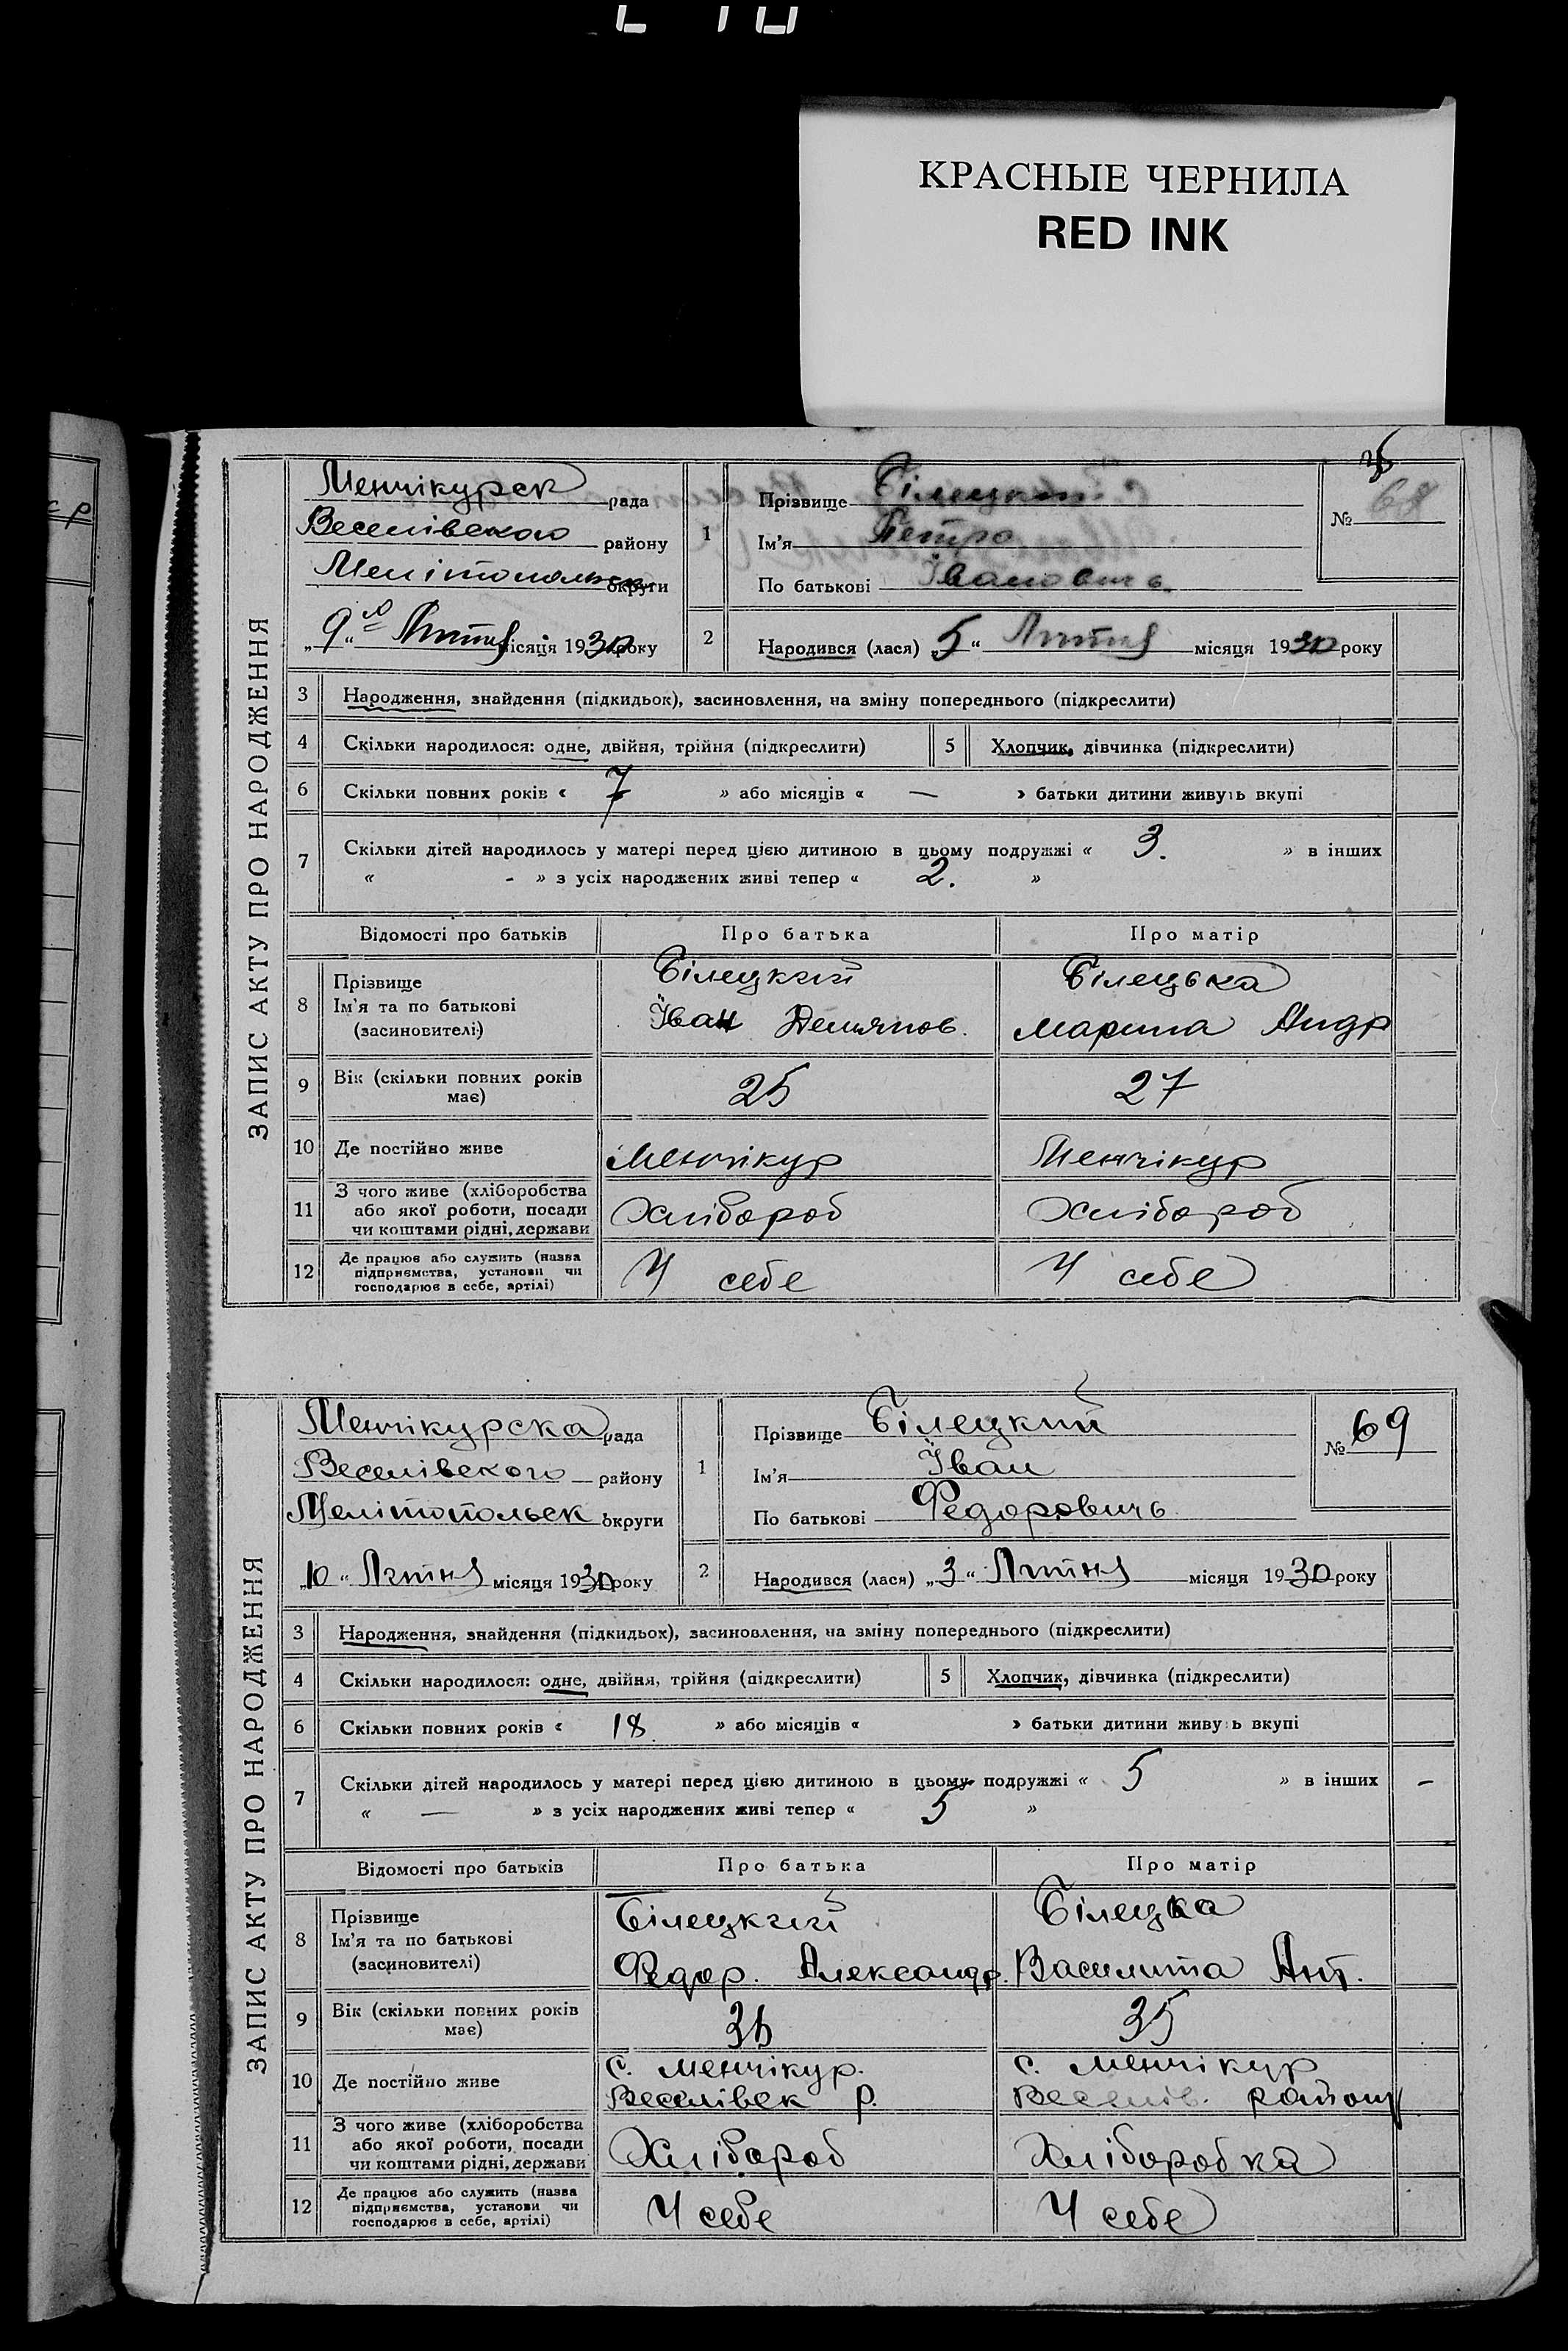 КРАСНЫЕ ЧЕРНИЛА
RED INK
ЗАПИС АКТУ ПРО НАРОДЖЕННЯ
Менчікурск рада
Веселівского району
Мелітопольск округи
„9“ Лютня місяця 1930 року
1
Прізвище Білецкий
Ім'я Петро
По батькові Івановичь
№ 68
2
Народився (лася) „5“ Лютня місяця 1930 року
3 Народження, знайдення (підкидьок), засиновлення, на зміну попереднього (підкреслити)
4 Скільки народилося: одне, двійня, трійня (підкреслити) 5 Хлопчик, дівчинка (підкреслити)
6 Скільки повних років « 7 » або місяців « — » батьки дитини живуть вкупі
7 Скільки дітей народилось у матері перед цією дитиною в цьому подружжі « 3. » в інших
« - » з усіх народжених живі тепер « 2. »
Відомості про батьків Про батька Про матір
8 Прізвище Білецкий Білецька
Ім'я та по батькові Іван Демянов. Марина Андр
(засиновителі)
9 Вік (скільки повних років має) 25 27
10 Де постійно живе Менчікур Менчікур
11 З чого живе (хліборобства
або якої роботи, посади Хлібороб Хлібороб
чи коштами рідні, держави
12 Де працює або служить (назва
підприємства, установи чи У себе У себе
господарює в себе, артілі)
ЗАПИС АКТУ ПРО НАРОДЖЕННЯ
Менчікурска рада
Веселівского району
Мелітопольск округи
„10“ Лютня місяця 1930 року
1
Прізвище Білецкий
Ім'я Іван
По батькові Федоровичь
№ 69
2
Народився (лася) „3“ Лютня місяця 1930 року
3 Народження, знайдення (підкидьох), засиновлення, на зміну попереднього (підкреслити)
4 Скільки народилося: одне, двійня, трійня (підкреслити) 5 Хлопчик, дівчинка (підкреслити)
6 Скільки повних років « 18 » або місяців « » батьки дитини живуть вкупі
7 Скільки дітей народилось у матері перед цією дитиною в цьому подружжі « 5 » в інших –
« — » з усіх народжених живі тепер « 5 »
Відомості про батьків Про батька Про матір
8 Прізвище Білецкий Білецка
Ім'я та по батькові Федор. Александр. Василина Ант.
(засиновителі)
9 Вік (скільки повних років має) 35
10 Де постійно живе с. Менчікур. с. Менчікур
Веселівск р. Веселів. району
11 З чого живе (хліборобства
або якої роботи, посади Хлібороб Хліборобка
чи коштами рідні, держави
12 Де працює або служить (назва
підприємства, установи чи У себе У себе
господарює в себе, артілі)